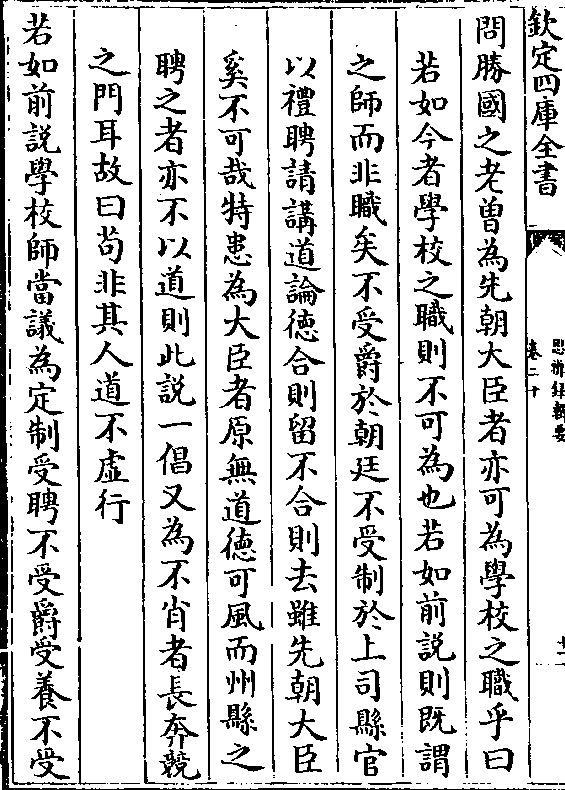 欽定四庫全書
思辨録輯要
卷二十
十二
問勝國之老曽為先朝大臣者亦可為學校之職乎曰
若如今者學校之職則不可為也若如前説則既謂
之師而非職矣不受爵於朝廷不受制於上司縣官
以禮聘請講道論徳合則留不合則去雖先朝大臣
奚不可哉特患為大臣者原無道徳可風而州縣之
聘之者亦不以道則此説一倡又為不肖者長奔競
之門耳故曰苟非其人道不虚行
若如前説學校師當議為定制受聘不受爵受養不受